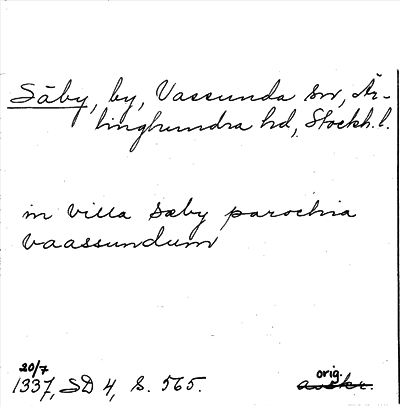 Säby, by, Vassunda sn, Är-
linghundra hd, Stockh. l.
in villa Sæby parochia
vaassundum
20/7
1337, SD 4, s. 565.
orig.
avskr.